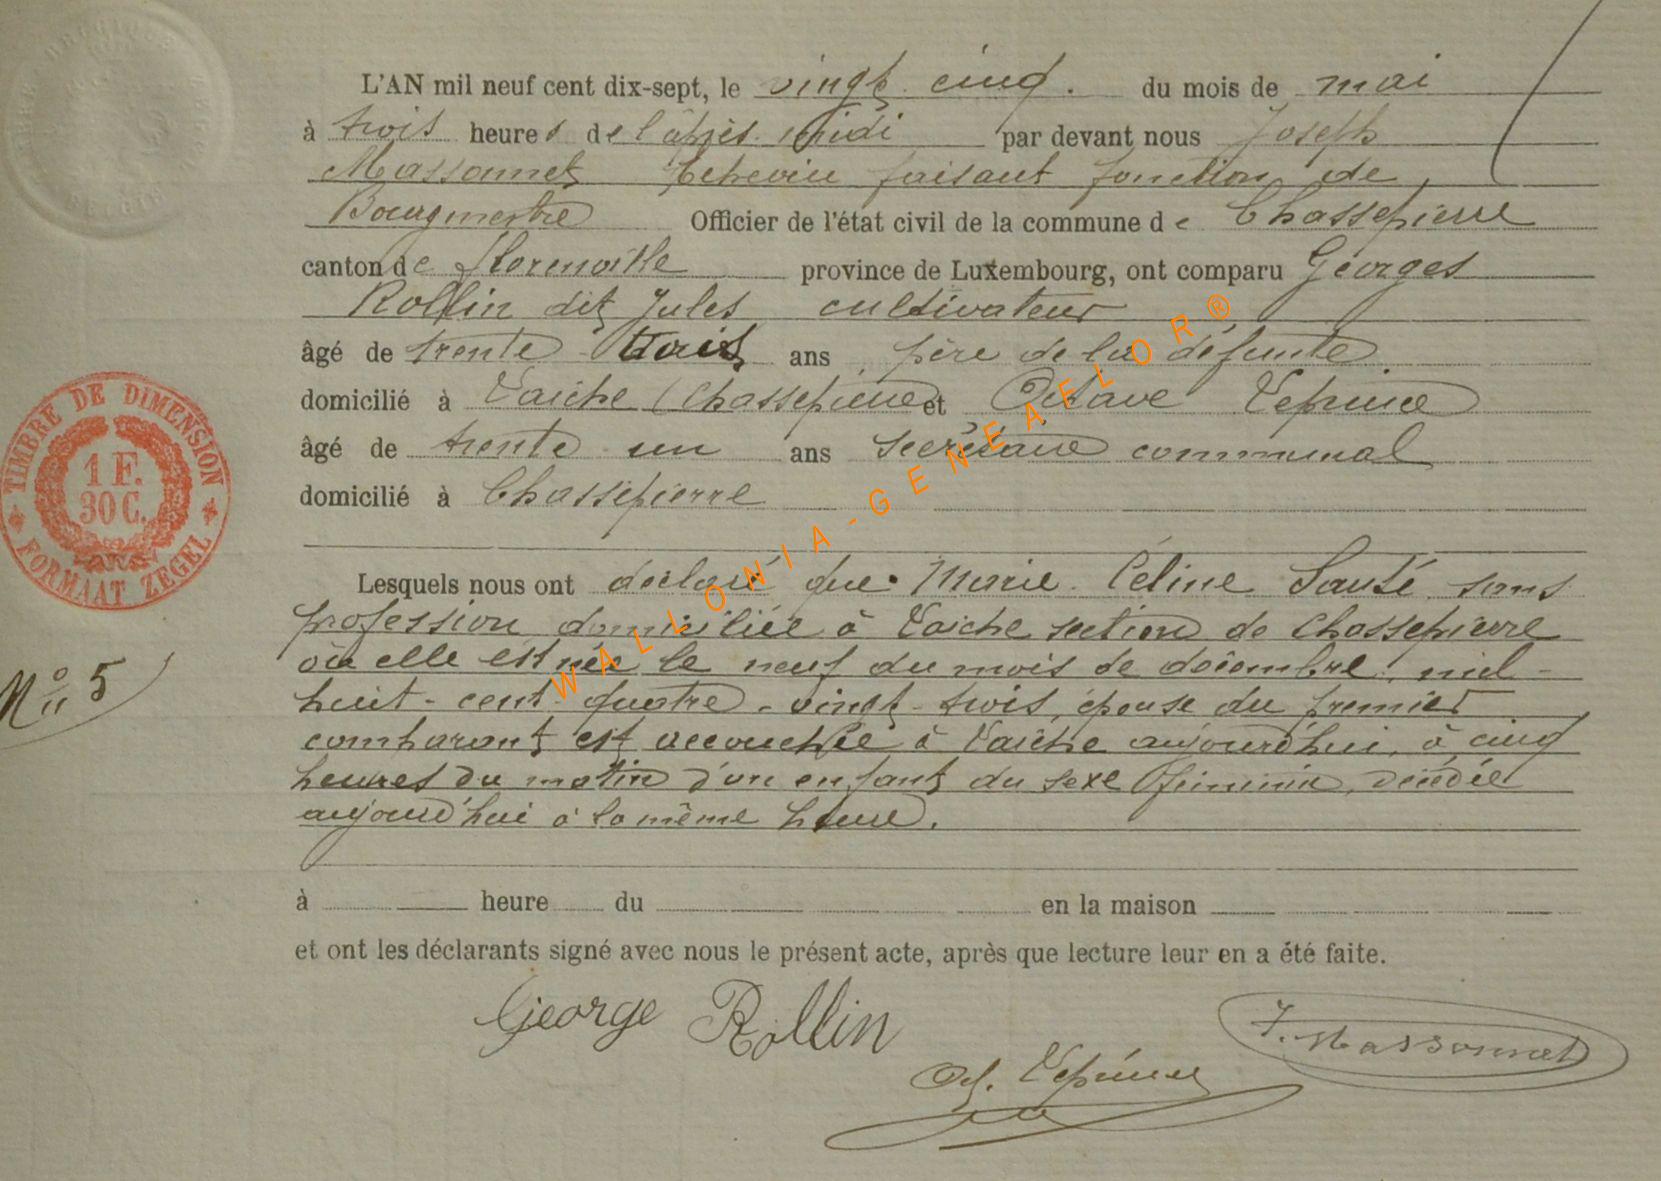 L'AN mil neuf cent dix-sept, le vingt cinq. du mois de mai
à trois heures de l'après midi par devant nous Joseph
Massonnet Echevin faisant fonction de
Bourgmestre Officier de l'état civil de la commune de Chassepierre
canton de Florenville province de Luxembourg, ont comparu Georges
Rollin dit Jules cultivateur
âgé de trente trois ans père de la défunte
domicilié à Laiche (Chassepierre et Octave Leprince
âgé de trente un ans secrétaire communal
domicilié à Chassepierre
Lesquels nous ont déclaré que Marie Céline Santé sans
profession domiciliée à Laiche section de Chassepierre
où elle est née le neuf du mois de décembre mil-
huit-cent-quatre-vingt-trois, épouse du premier
comparant est accouchée à Laiche aujourd'hui, à cinq
heures du matin d'un enfant du sexe féminin, décédée
aujourd'hui à la même heure.
à heure du en la maison
et ont les déclarants signé avec nous le présent acte, après que lecture leur en a été faite.
George Rollin
J. Massonnet
Oct. Leprince
N° 5
TIMBRE DE DIMENSION
1 F.
30 C.
FORMAAT ZEGEL
WALLONIA-GENEAELOR®